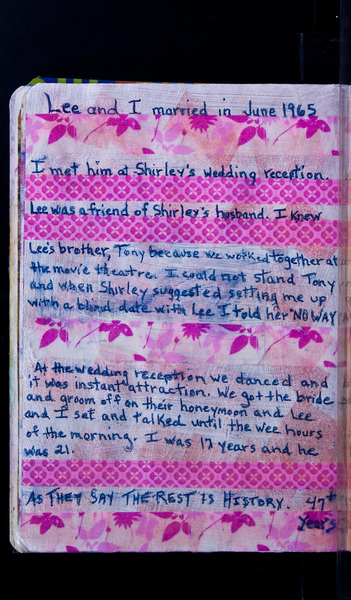 Lee and I married in June 1965
I met him at Shirley's wedding reception.
Lee was a friend of Shirley's husband. I knew
Lee's brother, Tony because we worked together at
the movie theatre. I could not stand Tony
and when Shirley suggested setting me up
with a blind date with Lee I told her "NO WAY
At the wedding reception we danced and
it was instant attraction. We got the bride
and groom off on their honeymoon and Lee
and I sat and talked until the wee hours
of the morning. I was 17 years and he
was 21.
AS THEY SAY THE REST IS HISTORY. 47+
years